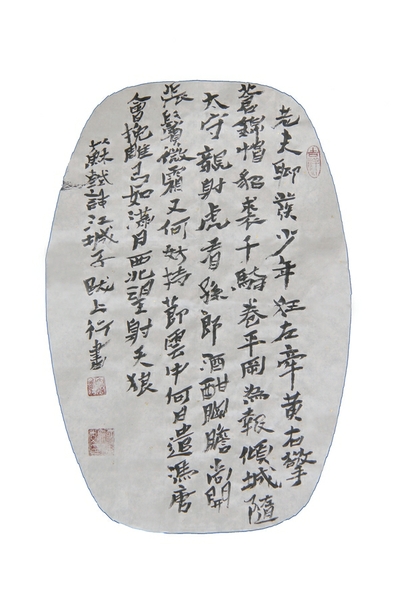 老夫聊發少年狂左牽黃右擎
蒼錦帽貂裘千騎卷平岡為報傾城隨
太守親射虎看孫郎酒酣胸膽尚開
張鬢微霜又何妨持節雲中何日遣馮唐
會挽雕弓如滿月西北望射天狼
蘇軾詩江城子 上行書